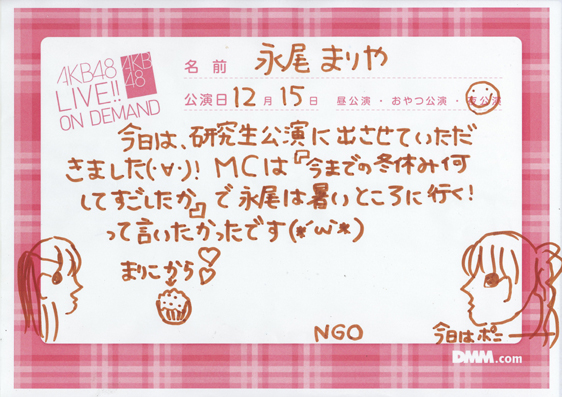 AKB48
LIVE!!
ON DEMAND
AKB
48
名前 永尾まりや
公演日 12月15日 昼公演・おやつ公演・夜公演
今日は、研究生公演に出させていただ
きました(・∀・)! MCは『今までの冬休み何
してすごしたか』で永尾は暑いところに行く!
って言いたかったです(*´ω`*)
まりこから♡♡
NGO
今日はポニー
DMM.com